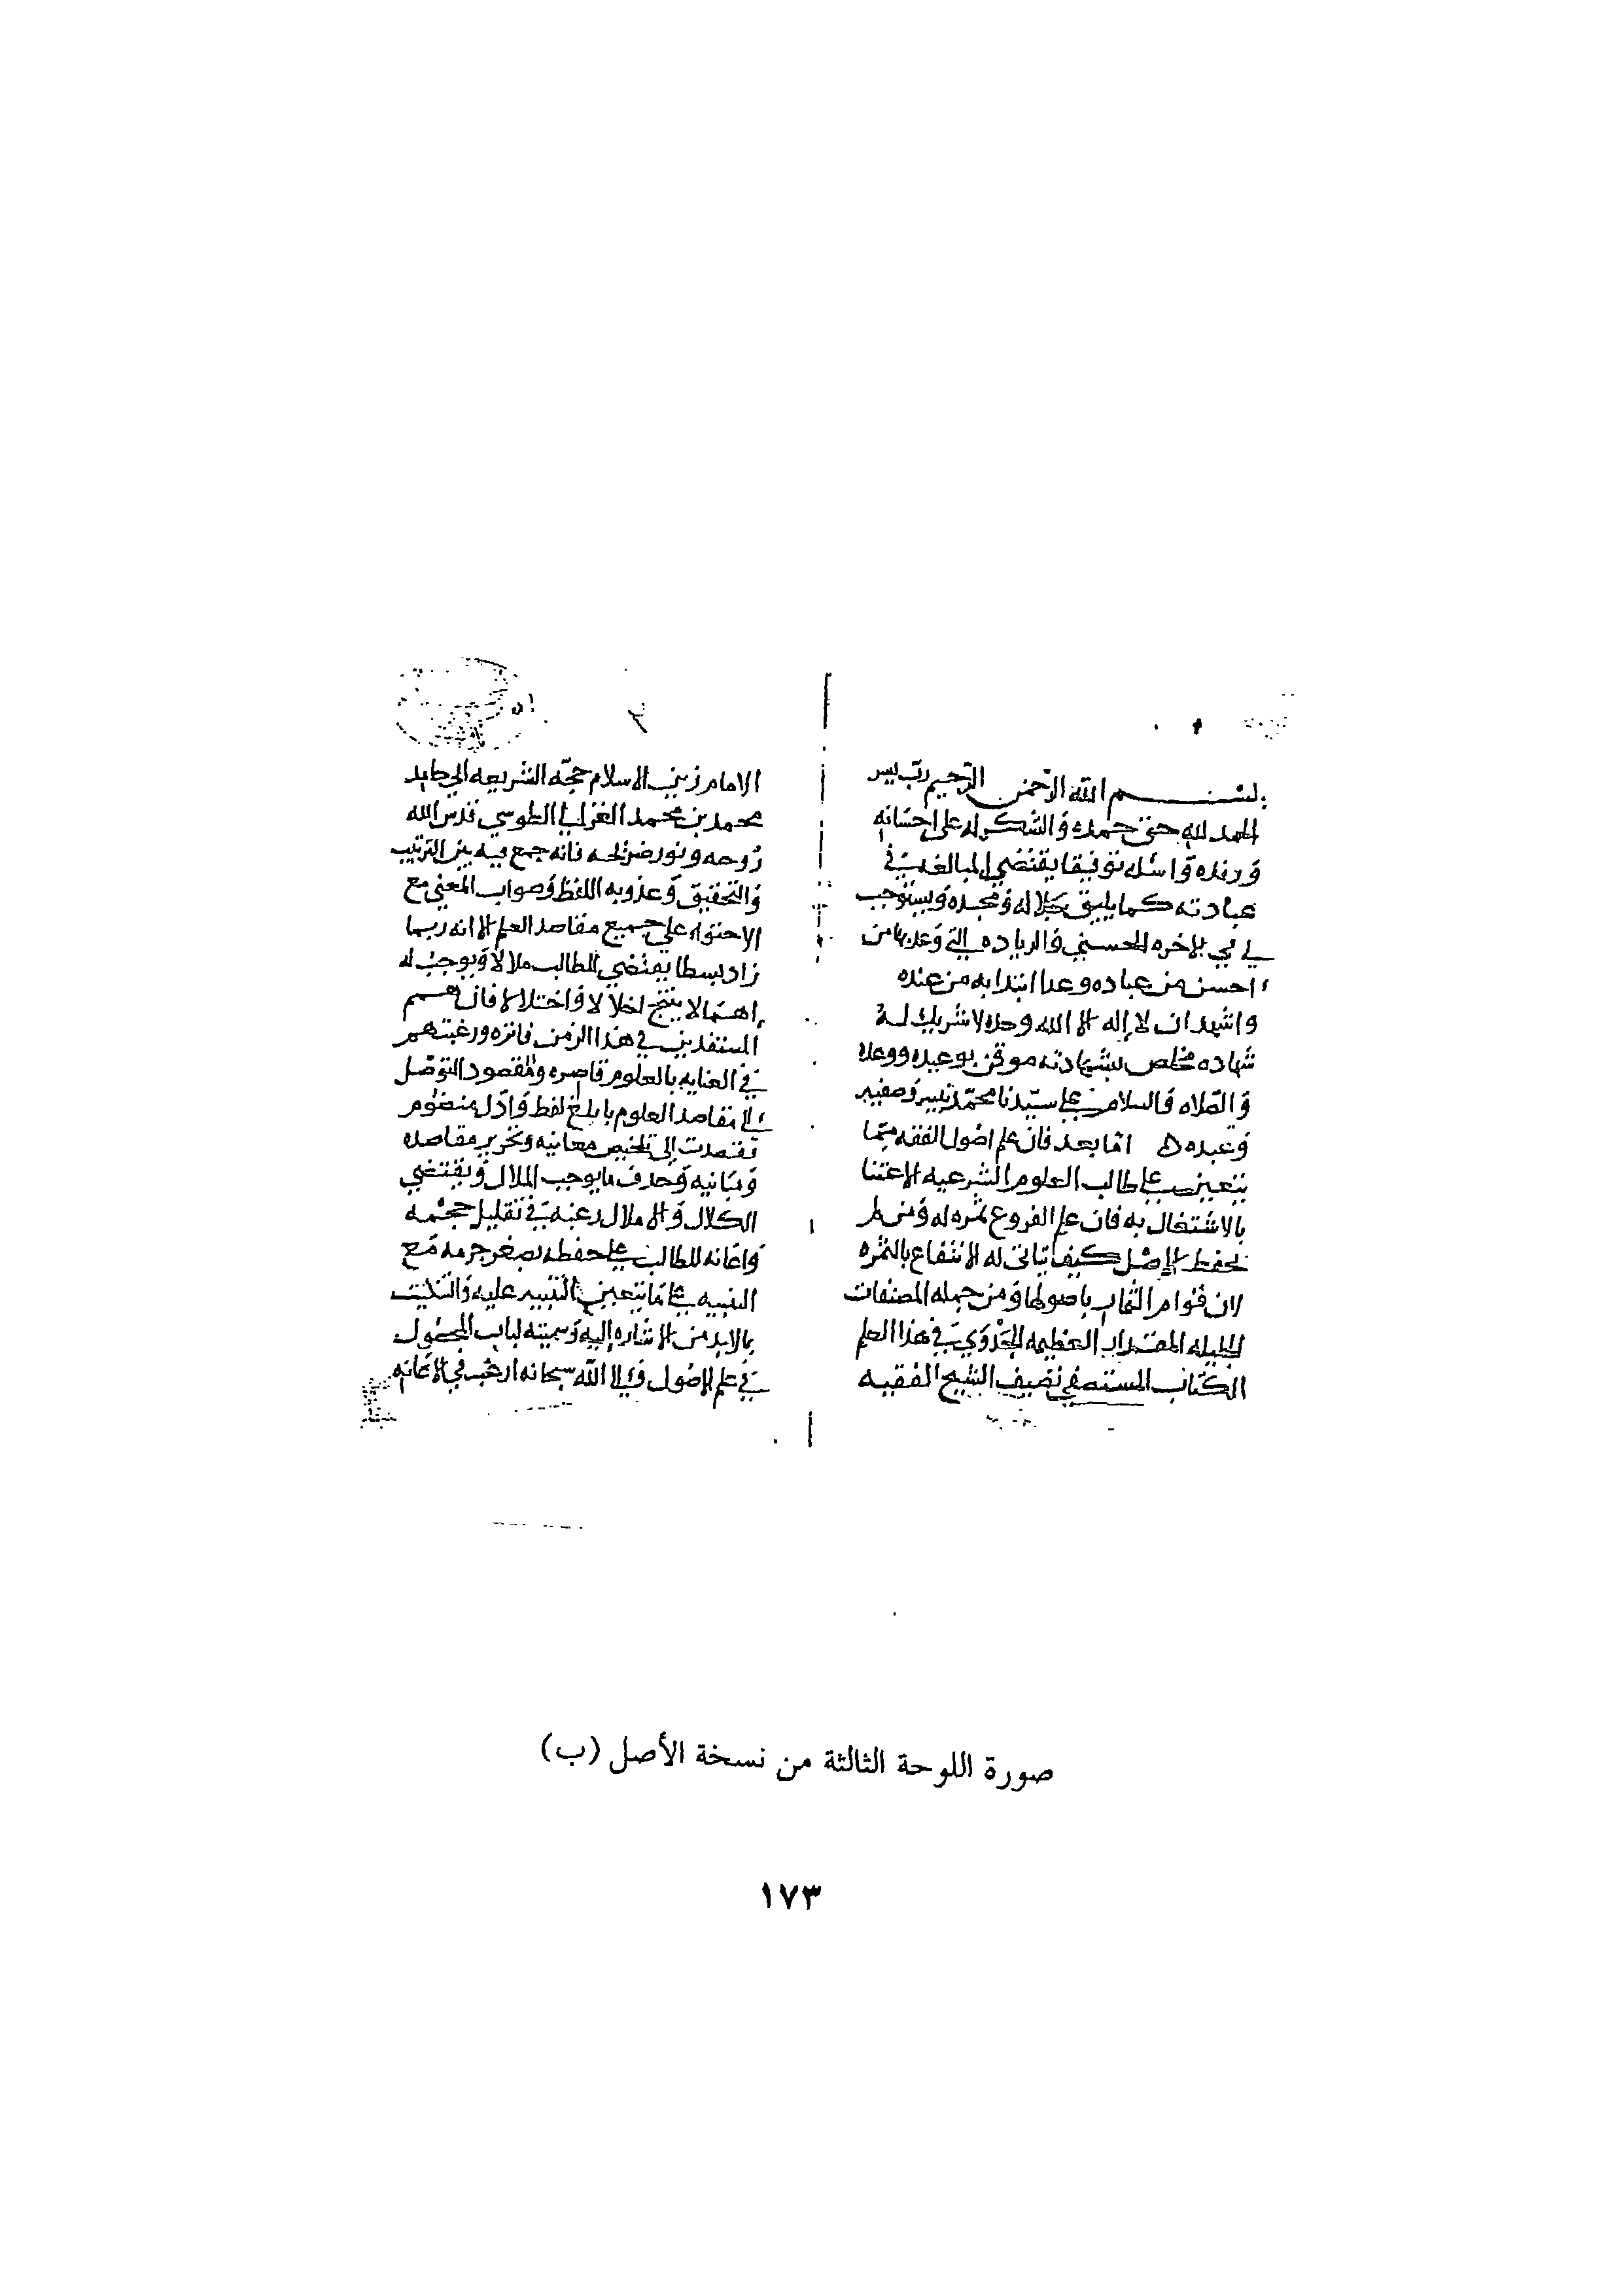 بسم الله الرحمن الرحيم رب يسر
الحمد لله حق حمده والشكر له على احسانه
ورفده واسله توفيقا يقتضي المبالغة في
عبادته كما يليق بجلاله ومجده ويستوجب
الاخره الحسنى والزياده التي وعد بها من
احسن من عباده وعدا ابتدا به من عنده
واشهد ان لا إله الا الله وحده لا شريك له
شهاده مخلص بشهادته موقن بوعيده ووعده
والصلاه والسلام على سيدنا محمد نبيه وصفيه
وعبده اما بعد فان علم اصول الفقه مما
يتعين على طالب العلوم الشرعيه الاعتنا
بالاشتغال به فان علم الفروع ثمره له ومن لم
يحفظ الاصل كيف يتاتى له الانتفاع بالثمره
لان قوام الثمار باصولها ومن جمله المصنفات
الجليله المقدار العظيمه الجدوى في هذا العلم
الكتاب المستصفى تصنيف الشيخ الفقيه
٣
الامام زين الاسلام حجة الشريعه ابي حامد
محمد بن محمد الغزالي الطوسي قدس الله
روحه ونور ضريحه فانه جمع فيه بين الترتيب
والتحقيق وعذوبه اللفظ وصواب المعنى مع
الاحتواء على جميع مقاصد العلم الا انه ربما
زاد بسطا يقتضي للطالب ملالا ويوجب له
اهمالا ينتج اخلالا واختلالا فان همم
المستفدين في هذا الزمن فاتره ورغبتهم
في العنايه بالعلوم قاصره والمقصود التوصل
الى مقاصد العلوم بابلغ لفظ وادل منظوم
فقصدت إلى تلخيص معانيه وتحرير مقاصده
ومبانيه وحذف ما يوجب الملال ويقتضي
الكلال والاملال رغبة في تقليل حجمه
واعانه للطالب على حفظه بصغر جرمه مع
التنبيه على ما يتعين التنبيه عليه والتنكيت
بما لابد من الاشاره إليه وسميته لباب المحصول
في علم الاصول والى الله سبحانه ارغب في الاعانه
صورة اللوحة الثالثة من نسخة الأصل (ب)
١٧٣